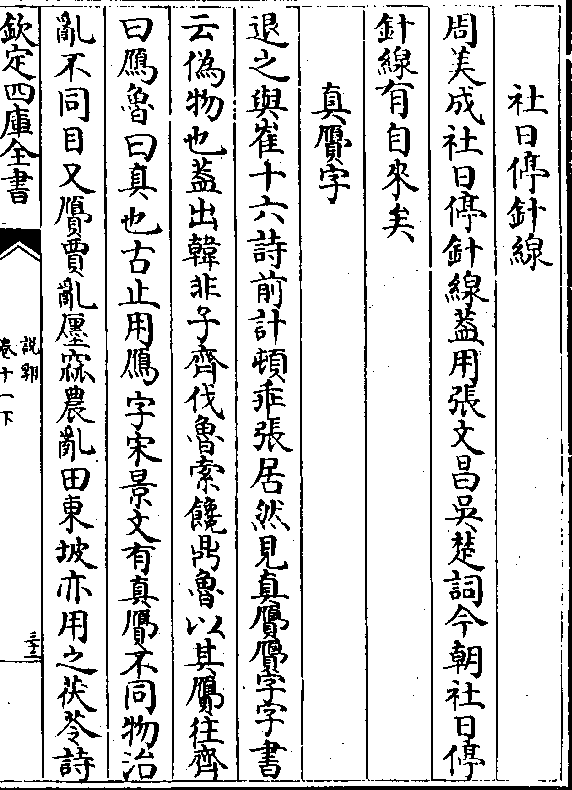 社日停針線
周美成社日停針線葢用張文昌吳楚詞今朝社日停
針線有自來矣
真贗字
退之與崔十六詩前計頓乖張居然見真贗贗字字書
云偽物也葢出韓非子齊伐魯索饞鼎魯以其贗往齊
曰鴈魯曰真也古止用鴈字宋景文有真贗不同物治
亂不同目又贗賈亂廛窳農亂田東坡亦用之茯苓詩
欽定四庫全書
說郛
卷十一下
三十二